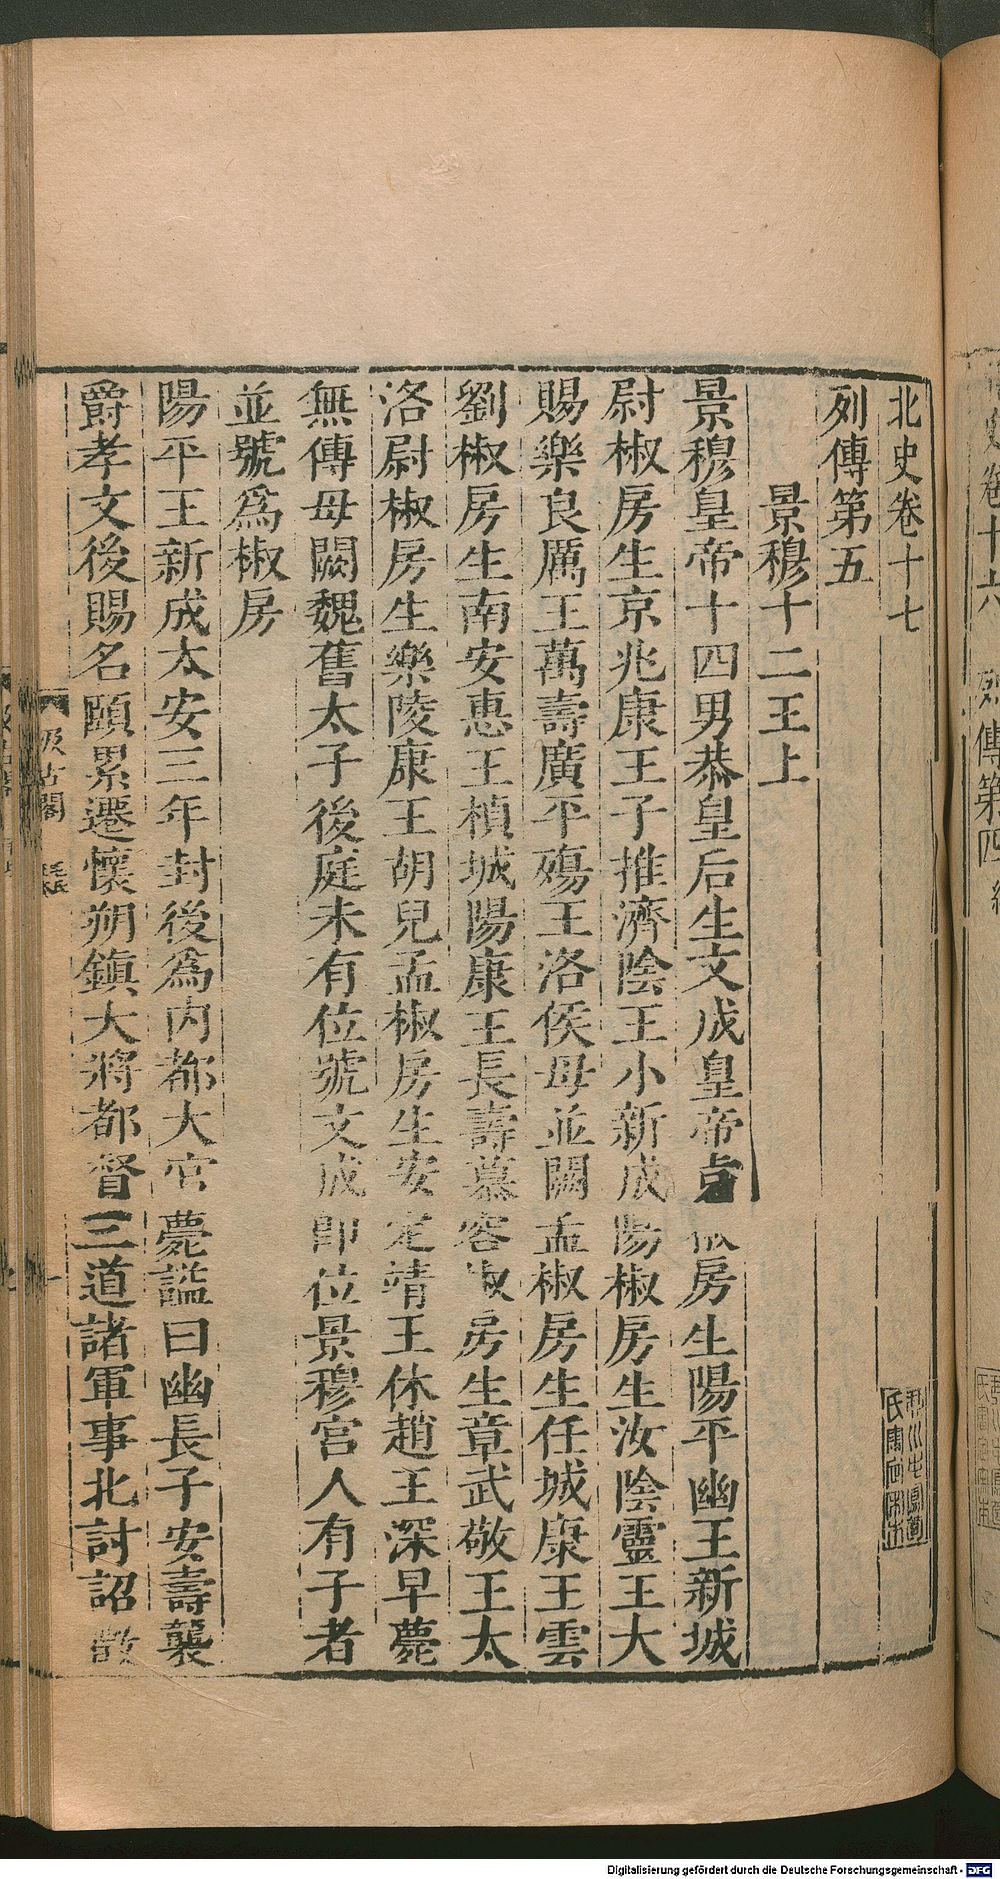 北史卷十七
列傳第五
景穆十二王上
景穆皇帝十四男恭皇后生文成皇帝 椒房生陽平幽王新城
尉椒房生京兆康王子推濟陰王小新成陽椒房生汝陰靈王大
賜樂良厲王萬壽廣平殤王洛侯母並闕孟椒房生任城康王雲
劉椒房生南安惠王楨城陽康王長壽慕容椒房生章武敬王太
洛尉椒房生樂陵康王胡兒孟椒房生安定靖王休趙王深早薨
無傳母闕魏舊太子後庭未有位號文成即位景穆宮人有子者
並號爲椒房
陽平王新成太安三年封後爲內都大官薨謚曰幽長子安壽襲
爵孝文後賜名頤累遷懷朔鎮大將都督三道諸軍事北討詔徵
汲古閣
毛氏
卷十六
列傳第四
Digitalisierung gefördert durch die Deutsche Forschungsgemeinschaft - DFG